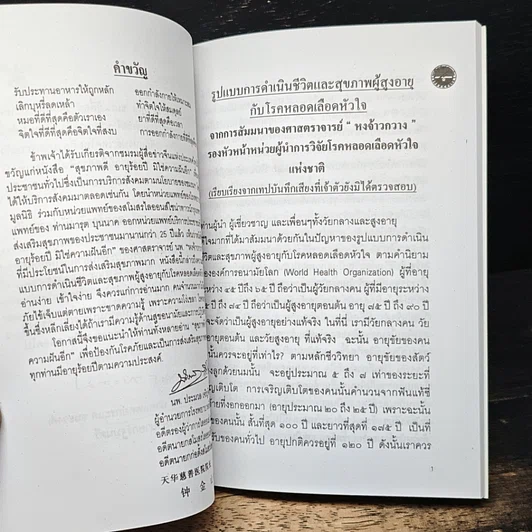 คำขวัญ
รับประทานอาหารให้ถูกหลัก ออกกำลังกายให้เหมาะสม
เลิกบุหรี่ลดเหล้า ทำจิตใจให้สมดุลย์
หมอที่ดีที่สุดคือตัวเราเอง ยาที่ดีที่สุดคือเวลา
จิตใจที่ดีที่สุดคือจิตใจที่สงบ การออกกำลังกายที่ดีที่สุด
ข้าพเจ้าได้รับเกียรติจากชมรมผู้สื่อข่าวจีน
ขวัญแก่หนังสือ " สุขภาพดี อายุร้อยปี มิใช่ความฝันอีก"
ประชาชนทั่วไปซึ่งเป็นการบริการสังคมตามนโยบายของ
ได้บริการให้กับสังคมมาตลอดเช่นกัน โดยนำหน่วยแพทย์
มูลนิธิ ร่วมกับหน่วยแพทย์ของสโมสรไลออนส์
แพทย์ของ ท่านมารุต บุนนาค ออกหน่วยแพทย์บริการ
ส่งเสริมสุขภาพของประชาชนมานานกว่า 25 ปีแล้ว
อายุร้อยปี มิใช่ความฝันอีก" ของศาสตราจารย์ นพ
ที่มีประโยชน์ในการส่งเสริมสุขภาพมาก หนังสือนี้
แบบการดำเนินชีวิตและสุขภาพผู้สูงอายุกับโรคหลอดเลือด
อ่านง่าย เข้าใจง่าย จึงควรแก่การอ่านมาก คน
ภัยใช้เจ็บแต่ตายเพราะขาดความรู้ เพราะความไม่
ขึ้นซึ่งหลีกเลี่ยงได้ถ้ามีความรู้ด้านสุขอนามัยและ
โอกาสนี้จึงขอแนะนำให้ท่านทั้งหลายอ่าน "
ความฝันอีก" เพื่อป้องกันโรคภัยและเป็นการส่งเสริม
ทุกท่านมีอายุร้อยปีตามความประสงค์.
นพ
ผู้อำนวยการโรงพยาบาล
อดีตรองผู้ว่าการไลออนส์
อดีตนายกสโมสร
อดีตนายกก่อตั้ง
天华慈善医院院
钟 金
รูปแบบการดำเนินชีวิตและสุขภาพผู้สูงอายุ
กับโรคหลอดเลือดหัวใจ
จากการสัมมนาของศาสตราจารย์ " หงจ้าวกวาง "
รองหัวหน้าหน่วยผู้นำการวิจัยโรคหลอดเลือดหัวใจ
แห่งชาติ
(เรียบเรียงจากเทปบันทึกเสียงที่เจ้าตัวยังมิได้ตรวจสอบ)
ท่านผู้นำ ผู้เชี่ยวชาญ และเพื่อนๆทั้งวัยกลางและสูงอายุ
ที่ได้มาสัมมนาด้วยกันในปัญหาของรูปแบบการดำเนิน
และสุขภาพผู้สูงอายุกับโรคหลอดเลือดหัวใจ ตามคำนิยาม
องค์การอนามัยโลก (World Health Organization) ผู้ที่อายุ
ระหว่าง ๔๕ ปีถึง ๖๕ ปี ถือว่าเป็นวัยกลางคน ผู้ที่มีอายุระหว่าง
ปี ถึง ๗๕ ปี ถือว่าเป็นผู้สูงอายุตอนต้น อายุ ๗๕ ปีถึง ๙๐ ปี
จะจัดว่าเป็นผู้สูงอายุอย่างแท้จริง ในที่นี้ เรามีวัยกลางคน วัย
อายุตอนต้น และวัยสูงอายุ ที่แท้จริง ฉะนั้น อายุขัยของคน
ควรจะอยู่ที่เท่าไร? ตามหลักชีววิทยา อายุขัยของสัตว์
ลูกด้วยนมนั้น จะอยู่ประมาณ ๕ ถึง ๗ เท่าของระยะที่
เติบโต การเจริญเติบโตของคนนั้นคำนวนจากฟันแท้ซี่
ท้ายที่งอกออกมา (อายุประมาณ ๒๐ ถึง ๒๕ ปี) เพราะฉะนั้น
ของคนนั้น สั้นที่สุด ๑๐๐ ปี และยาวที่สุด ที่ ๑๗๕ ปี เป็นที่
รับของคนทั่วไป อายุปกติควรอยู่ที่ ๑๒๐ ปี ดังนั้นเราควร
1